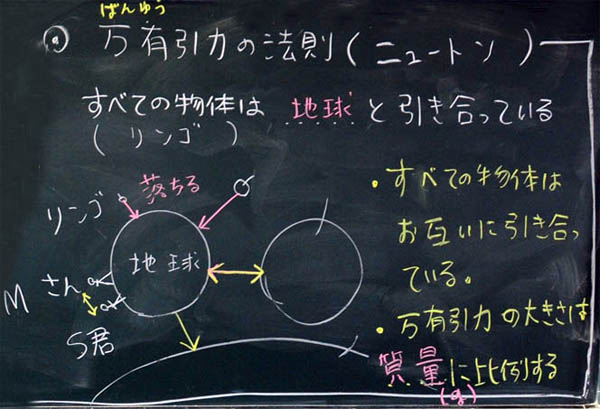 ばんゆう
万有引力の法則(ニュートン)
すべての物体は 地球と引き合っている
(リンゴ)
リンゴ
落ちる
地球
Mさん
S君
・すべての物体は
お互いに引き合っ
ている。
・万有引力の大きさは
質量に比例する
(g)